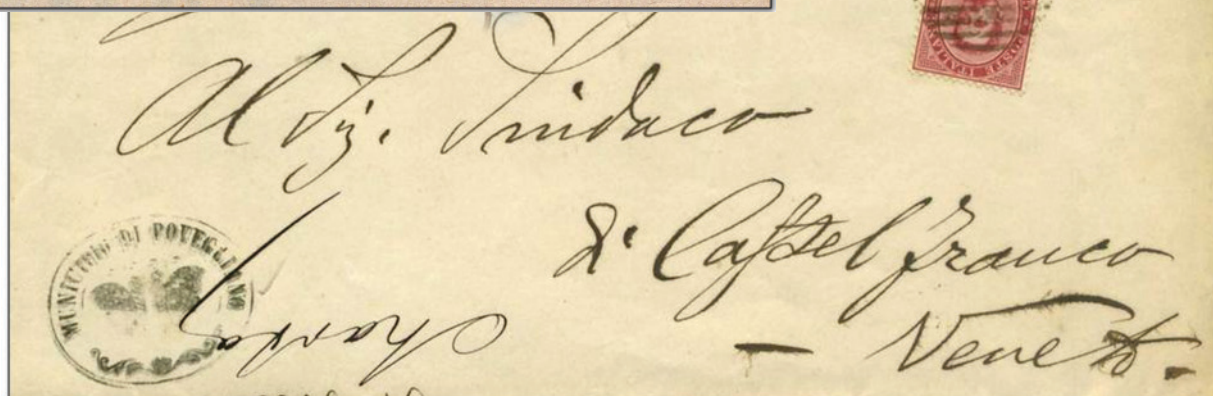 Al Sig. Sindaco
di Castelfranco
- Veneto.
MUNICIPIO DI POVEGLIANO
POSTE ITALIANE